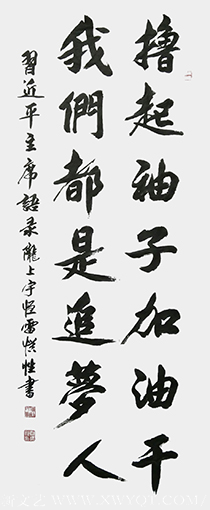 撸起袖子加油干
我們都是追夢人
習近平主席語录隴上宇恆雷
書